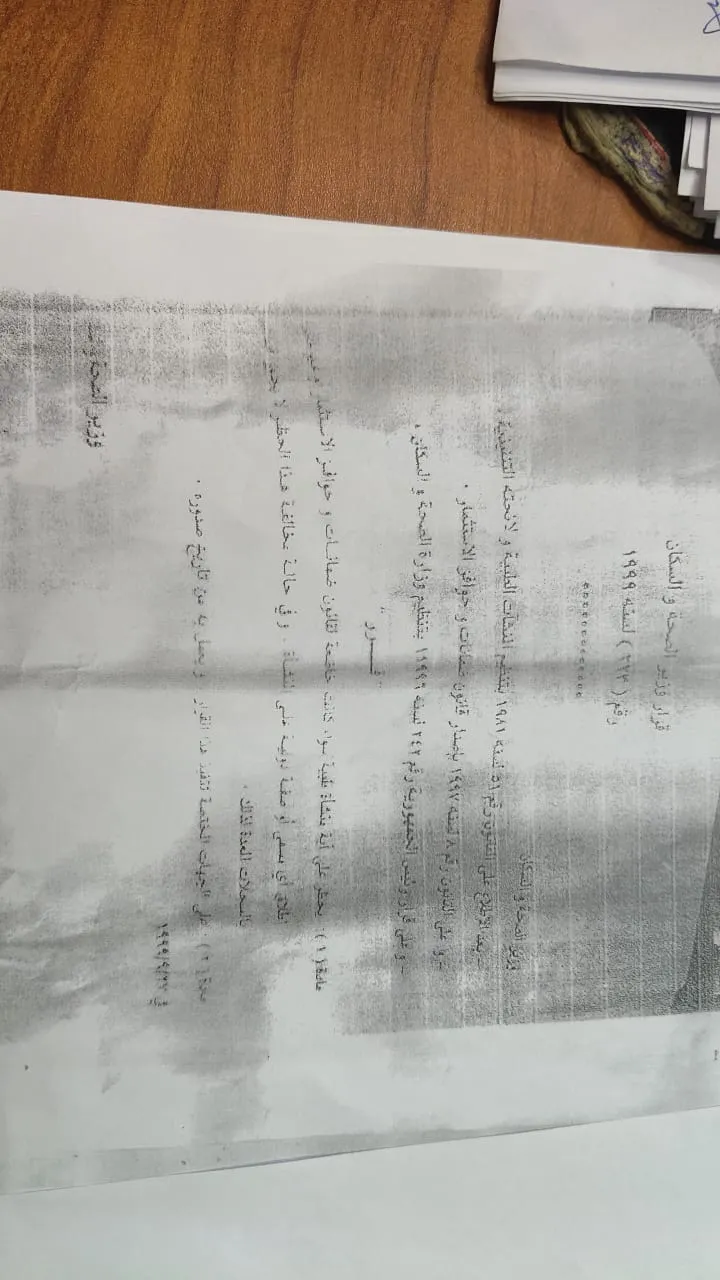 قرار وزير الصحة و السكان
رقم ( ) لسنة ١٩٩٩
وزير الصحة و السكان
- بعد الاطلاع على القانون رقم ٥١ لسنة ١٩٨١ بتنظيم المنشآت الطبية و لائحته التنفيذية .
- و على القانون رقم ٨ لسنة ١٩٩٧ بإصدار قانون ضمانات و حوافز الاستثمار .
- و على قرار رئيس الجمهورية رقم ٢٤٢ لسنة بتنظيم وزارة الصحة و السكان .
" قـــرر "
مادة (١) : يحظر على أية منشأة طبية سواء كانت خاضعة لقانون ضمانات و حوافز الاستثمار
اطلاق أي مسمى أو صفة دولية على المنشأة . و في حالة مخالفة هذا الحظر لا
بالسجلات المعدة لذلك .
مادة (٢) : على الجهات المختصة تنفيذ هذا القرار و يعمل به من تاريخ صدوره .
في
وزير الصحة